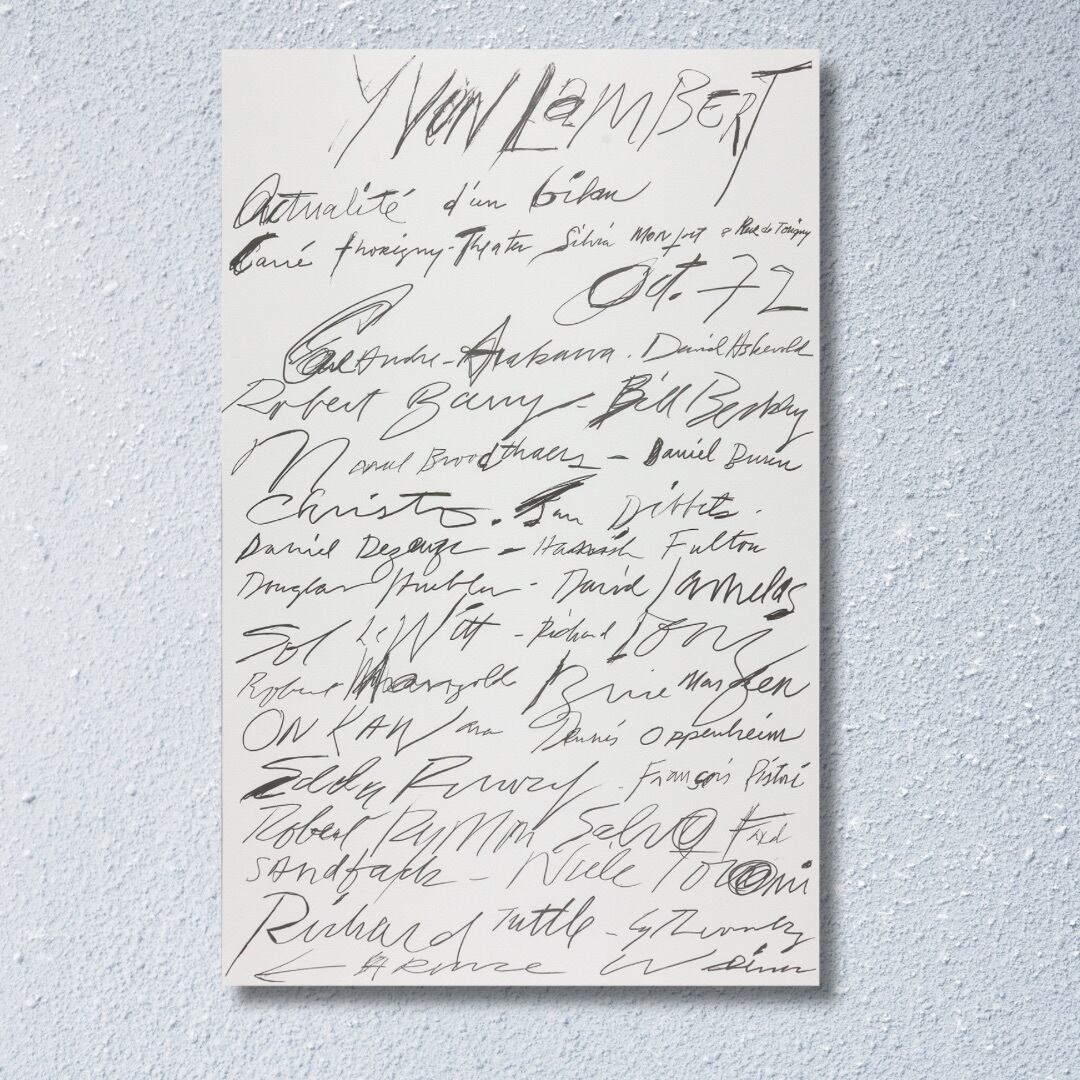 YVON LaMBERT
Actualité d'un bilan
Carré Thorigny-Theater Silvia Monfort 8 Rue de Torigny
Oct. 72
Carl Andre - Arakawa. David Askevold
Robert Barry - Bill Beckley
Marcel Broodthaers - Daniel Buren
Christo. Jan Dibbets.
Daniel Dezeuze - Hamish Fulton
Douglas Huebler - David Lamelas
Sol LeWitt - Richard Long
Robert Mangold Brice Marden
ON KAWara Dennis Oppenheim
Edda Renouf. François Ristori
Robert Ryman Salvo Fred
SAndback - Niele Toroni
Richard Tuttle - Cy Twombly
LAwrence Weiner